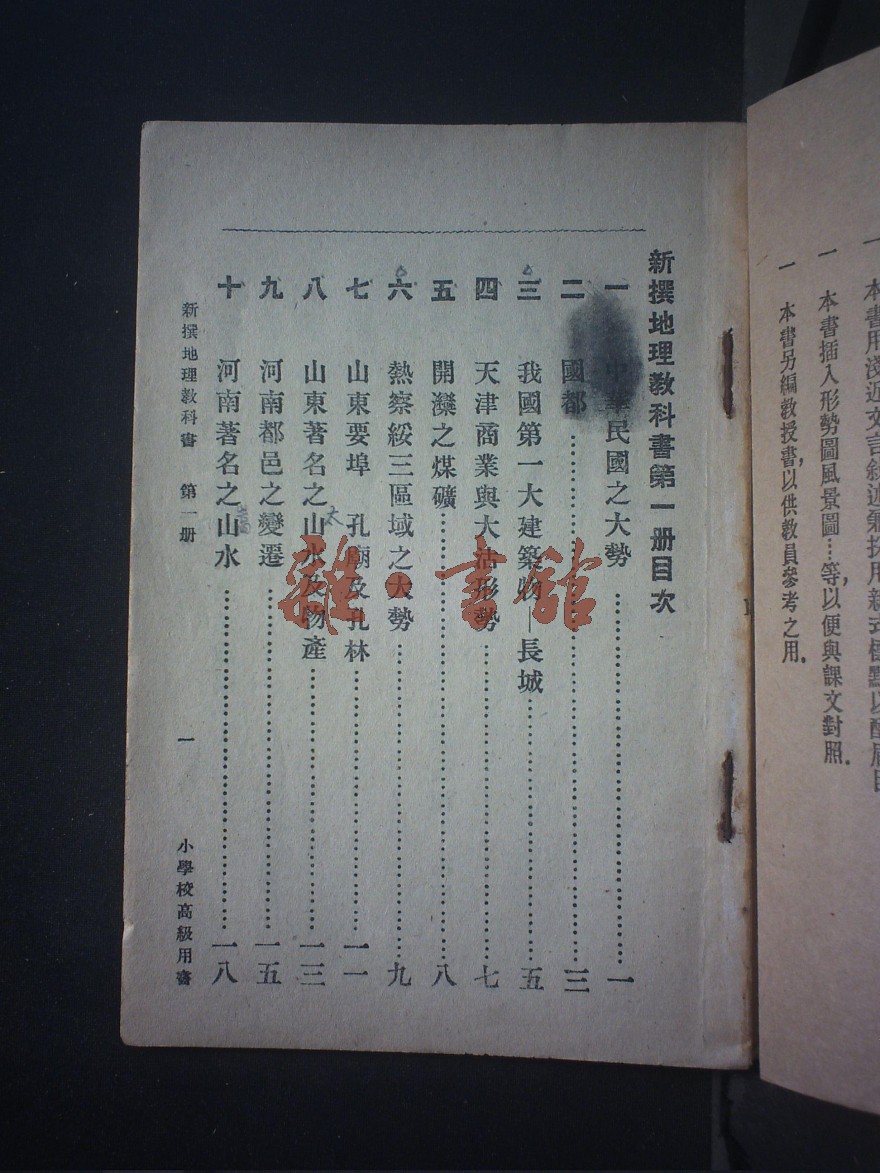 一 本書用淺近文言敍述兼採用新式標點以醒眉目
一 本書插入形勢圖風景圖…等,以便與課文對照.
一 本書另編教授書,以供教員參考之用.
新撰地理教科書第一册目次
一 中華民國之大勢……一
二 國都……三
三 我國第一大建築物—長城……五
四 天津商業與大沽形勢……七
五 開灤之煤礦……八
六 熱察綏三區域之大勢……九
七 山東要埠 孔廟及孔林……一一
八 山東著名之山水及物產……一三
九 河南都邑之變遷……一五
十 河南著名之山水……一八
新撰地理教科書 第一册 一 小學校高級用書
雜·書館